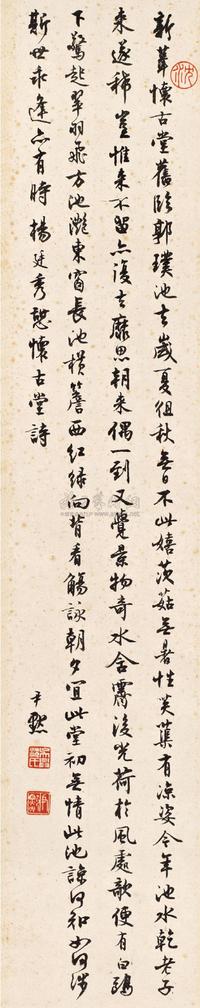 新葺懷古堂舊臨郭璞池去歲夏徂秋無日不此嬉茨菰無暑性芙蕖有涼姿今年池水乾老子
來遂稀豈惟來不留亦復去靡思朝來偶一到又覺景物奇水含霽後光荷於風處欹便有白鷗
下驚起翠羽飛方池灩東窗長池橫簷西紅綠向背看觴詠朝夕宜此堂初無情此池諒何知如何涉
斯世乖逢亦有時楊廷秀憩懷古堂詩
尹默